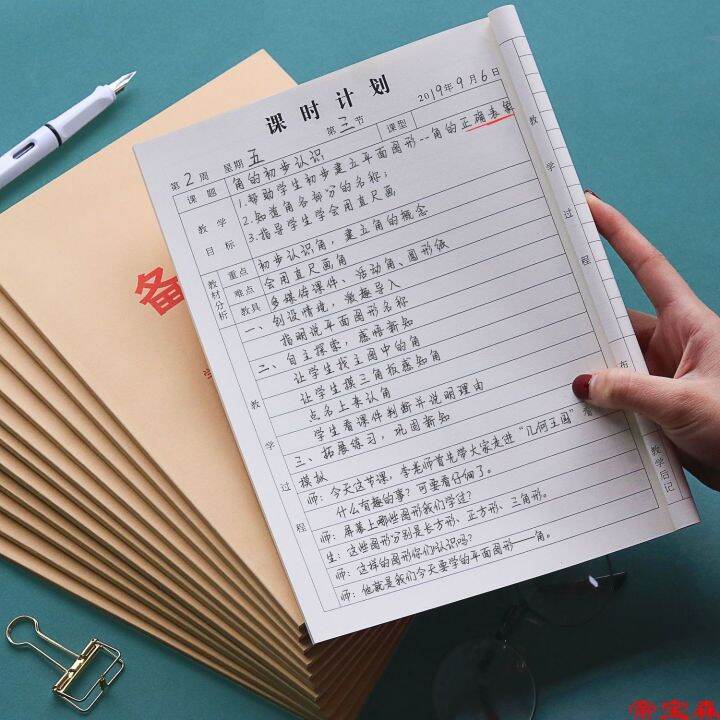 备
课时计划
2019年9月6日
第2周 星期五 第三节 课型
课题 角的初步认识
教学目标
1.帮助学生初步建立平面图形--角的正确表象
2.知道角各部分的名称;
3.指导学生学会用直尺画
教材分析
重点 初步认识角,建立角的概念
难点 会用直尺画角
教具 多媒体课件、活动角、圆形纸
教学过程
一、创设情境,激趣导入
指明说平面图形名称
二、自主探索,感悟新知
让学生找主图中的角
让学生摸三角板感知角
点名上来认角
学生看课件判断并说明理由
三、拓展练习,巩固新知
模拟
师:今天这节课,李老师首先带大家走进“几何王国”看
什么有趣的事?可要看仔细了。
师:屏幕上哪些图形我们学过?
生:这些图形分别是长方形、正方形、三角形。
师:这样的图形你们认识吗?
师:他就是我们今天要学的平面图形——角。
教学过程
布
教学后记
帝宝森